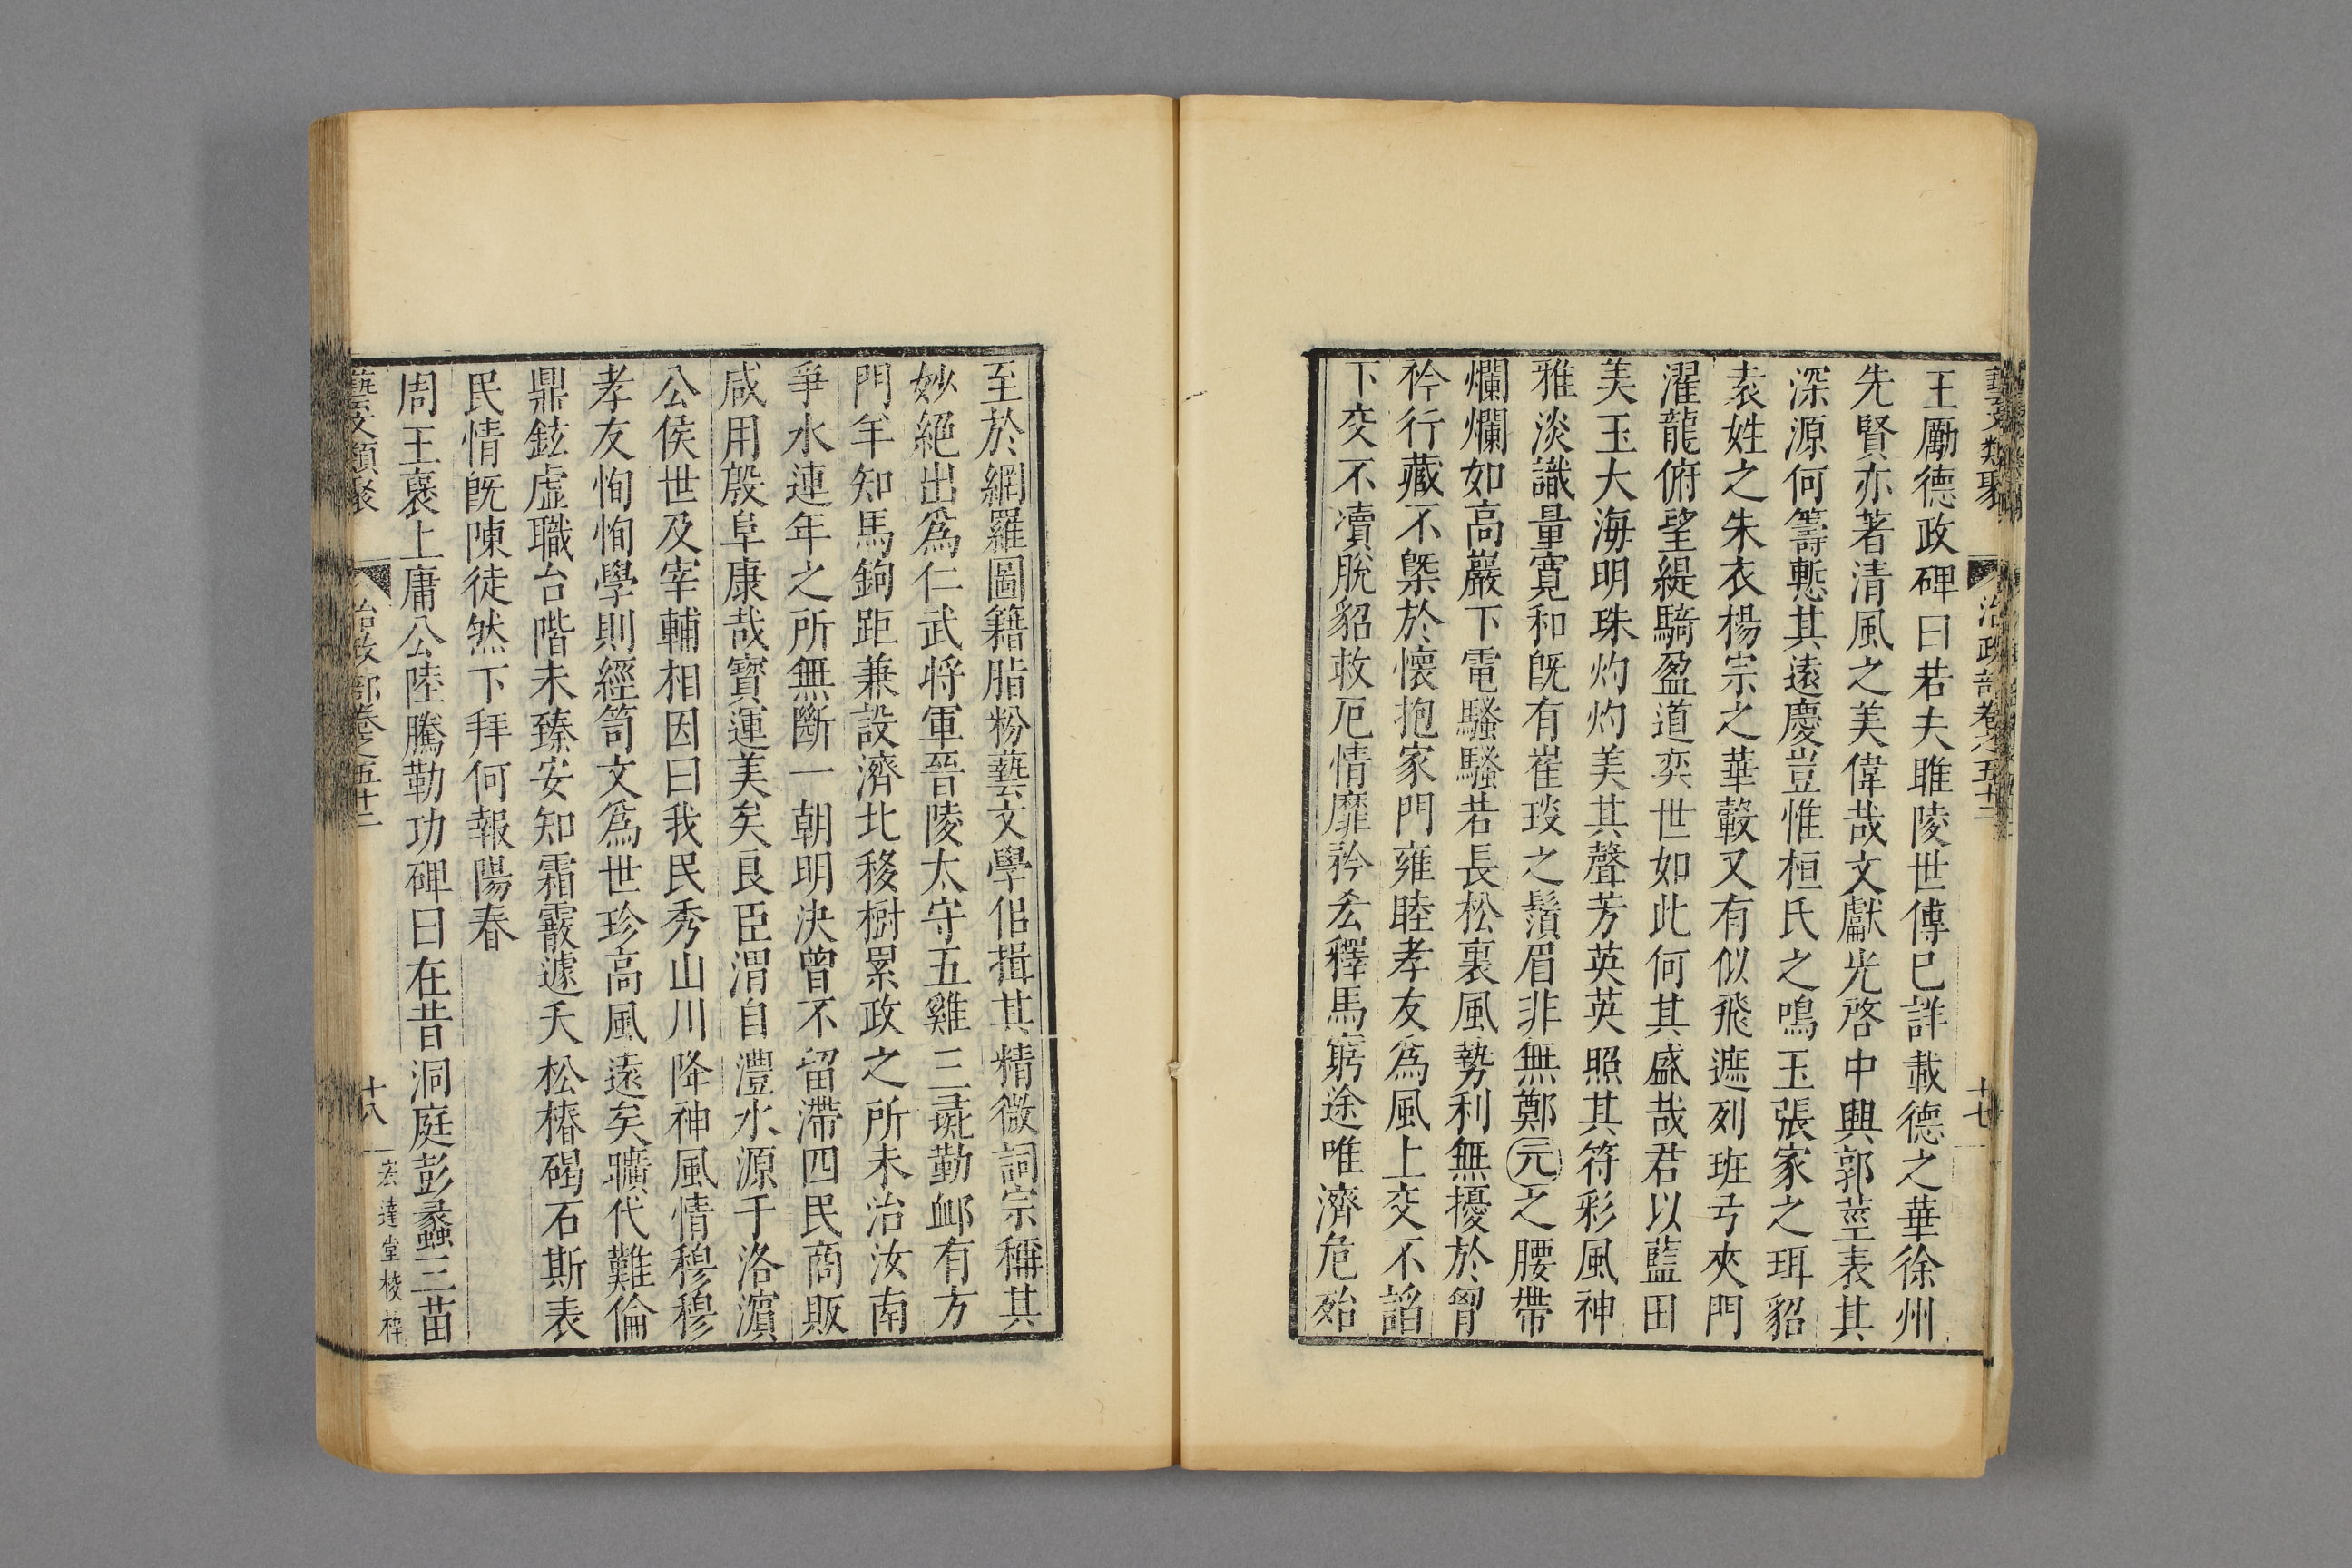 藝文類聚 治政部卷之五十二 十七
王勵德政碑曰若夫睢陵世傳已詳載德之華徐州
先賢亦著清風之美偉哉文獻光啓中興郭莖表其
深源何籌慙其遠慶豈惟桓氏之鳴玉張家之珥貂
袁姓之朱衣楊宗之華轂又有似飛遮列班弓夾門
濯龍俯望緹騎盈道奕世如此何其盛哉君以藍田
美玉大海明珠灼灼美其聲芳英英照其符彩風神
雅淡識量寬和旣有崔琰之鬚眉非無鄭元之腰帶
爛爛如高巖下電騷騷若長松裏風勢利無擾於胷
衿行藏不槩於懷抱家門雍睦孝友爲風上交不諂
下交不瀆脫貂救厄情靡矜厷釋馬窮途唯濟危殆
至於網羅圖籍脂粉藝文學侶揖其精微詞宗稱其
妙絕出爲仁武將軍晉陵太守五雞三彘勤卹有方
門羊知馬鉤距兼設濟北移樹累政之所未治汝南
爭水連年之所無斷一朝明決曾不留滯四民商販
咸用殷阜康哉寶運美矣良臣渭自灃水源于洛濵
公侯世及宰輔相因曰我民秀山川降神風情穆穆
孝友恂恂學則經笥文爲世珍高風遠矣曠代難倫
鼎鉉虛職台階未臻安知霜霰遽夭松椿碣石斯表
民情旣陳徒然下拜何報陽春
周王褒上庸公陸騰勒功碑曰在昔洞庭彭蠡三苗
藝文類聚 治政部卷之五十二 十八 宏達堂校梓